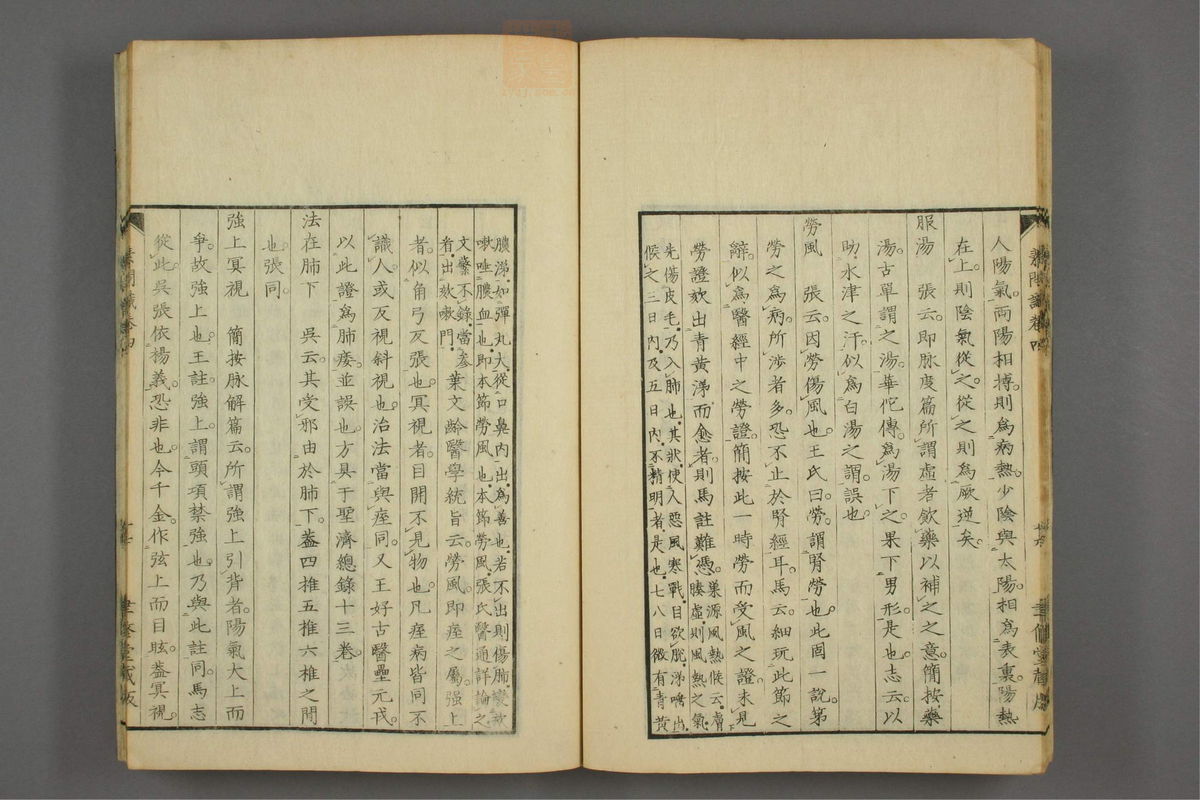 人陽氣兩陽相搏則爲病熱少陰與太陽相爲表裏陽熱
在上則陰氣從之從之則爲厥逆矣
服湯　張云即脉度篇所謂虛者飲藥以補之之意簡按藥
湯古單謂之湯華佗傳爲湯下之果下男形是也志云以
助水津之汗似爲白湯之謂誤也
勞風　張云因勞傷風也王氏曰勞謂腎勞也此固一說第
勞之爲病所涉者多恐不止於腎經耳馬云細玩此節之
辭似爲醫經中之勞證簡按此一時勞而受風之證未見
勞證欬出青黃涕而愈者則馬註難憑巢源風熱候云膚
腠虛則風熱之氣
先傷皮毛乃入肺也其狀使人惡風寒戰目欲脫涕唾出
候之三日內及五日內不精明者是也七八日微有青黃
膿涕如彈丸大從口鼻內出爲善也若不出則傷肺變欬
嗽唾膿血也即本節勞風也本節勞風張氏醫通詳論之
文繁不錄當參
看出欬嗽門
葉文齡醫學統旨云勞風即痓之屬強上
者似角弓反張也冥視者目開不見物也凡痓病皆同不
識人或反視斜視也治法當與痓同又王好古醫壘元戎
以此證爲肺痿並誤也方具于聖濟總錄十三卷
法在肺下　吳云其受邪由於肺下蓋四椎五椎六椎之間
也張同
強上冥視　簡按脉解篇云所謂強上引背者陽氣大上而
爭故強上也王註強上謂頭項禁強也乃與此註同馬志
從此吳張依楊義恐非也今千金作弦上而目眩蓋冥視
素問識卷四
聿修堂藏版